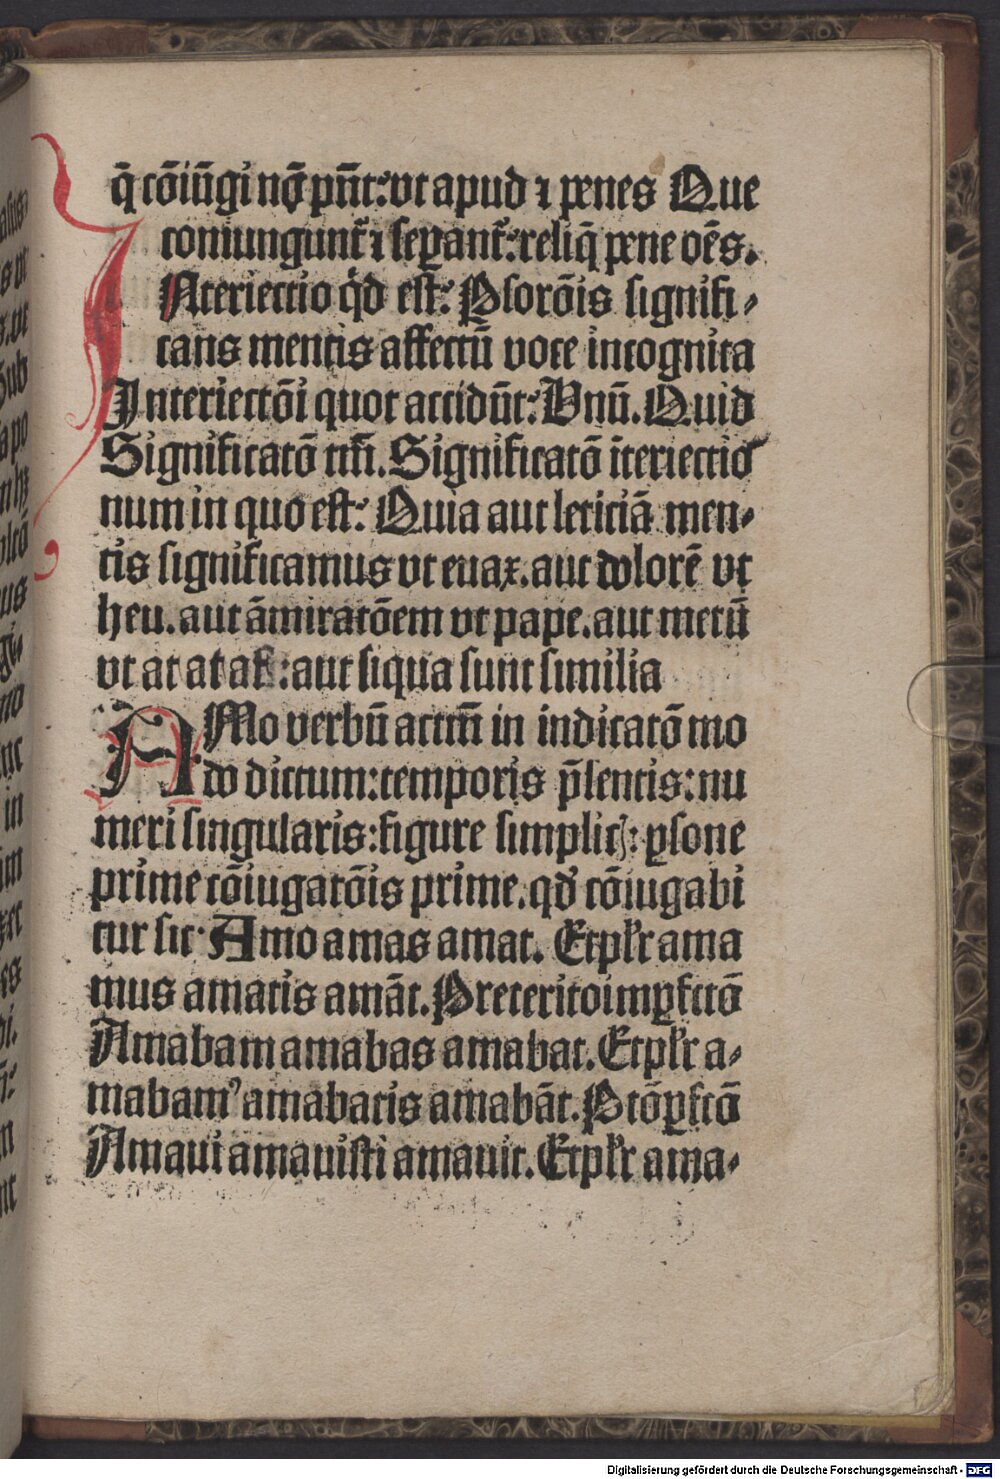 q̄ cōiūgi nō pn̄t: vt apud ⁊ penes Que
coniungunt᷑ ⁊ sepant᷑: reliq̄ pene oēs.
INteriectio qd̓ est: Ps orōis signifi⸗
cans mentis affectū voce incognita
Interiectōi quot accidūt: Vnū. Quid
Significatō tm̄. Significatō īteriectio
num in quo est: Quia aut leticiā men⸗
tis significamus vt euax. aut dolorē vt
heu. aut āmiratōem vt pape. aut metū
vt at at at: aut siqua sunt similia
AMo verbū actm̄ in indicatō mo
do dictum: temporis p̄sentis: nu
meri singularis: figure simplic̄: ꝑsone
prime cōiugatōis prime. qd̓ cōiugabi
tur sic Amo amas amat. Et pl̓r ama
mus amatis amāt. Preterito impꝑfctō
Amabam amabas amabat. Et pl̓r a⸗
mabamꝰ amabatis amabāt. Ptō ꝑfctō
Amaui amauisti amauit. Et pl̓r ama⸗
Digitalisierung gefördert durch die Deutsche Forschungsgemeinschaft - DFG